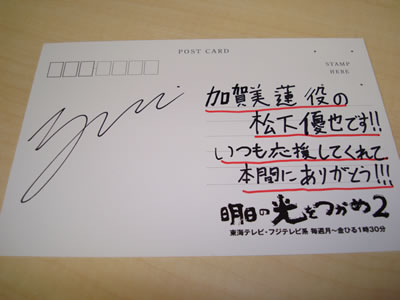 POST CARD
STAMP
HERE
加賀美蓮役の
松下優也です!!
いつも応援してくれて
本間にありがとう!!!
明日の光をつかめ2
東海テレビ・フジテレビ系 毎週月〜金ひる1時30分